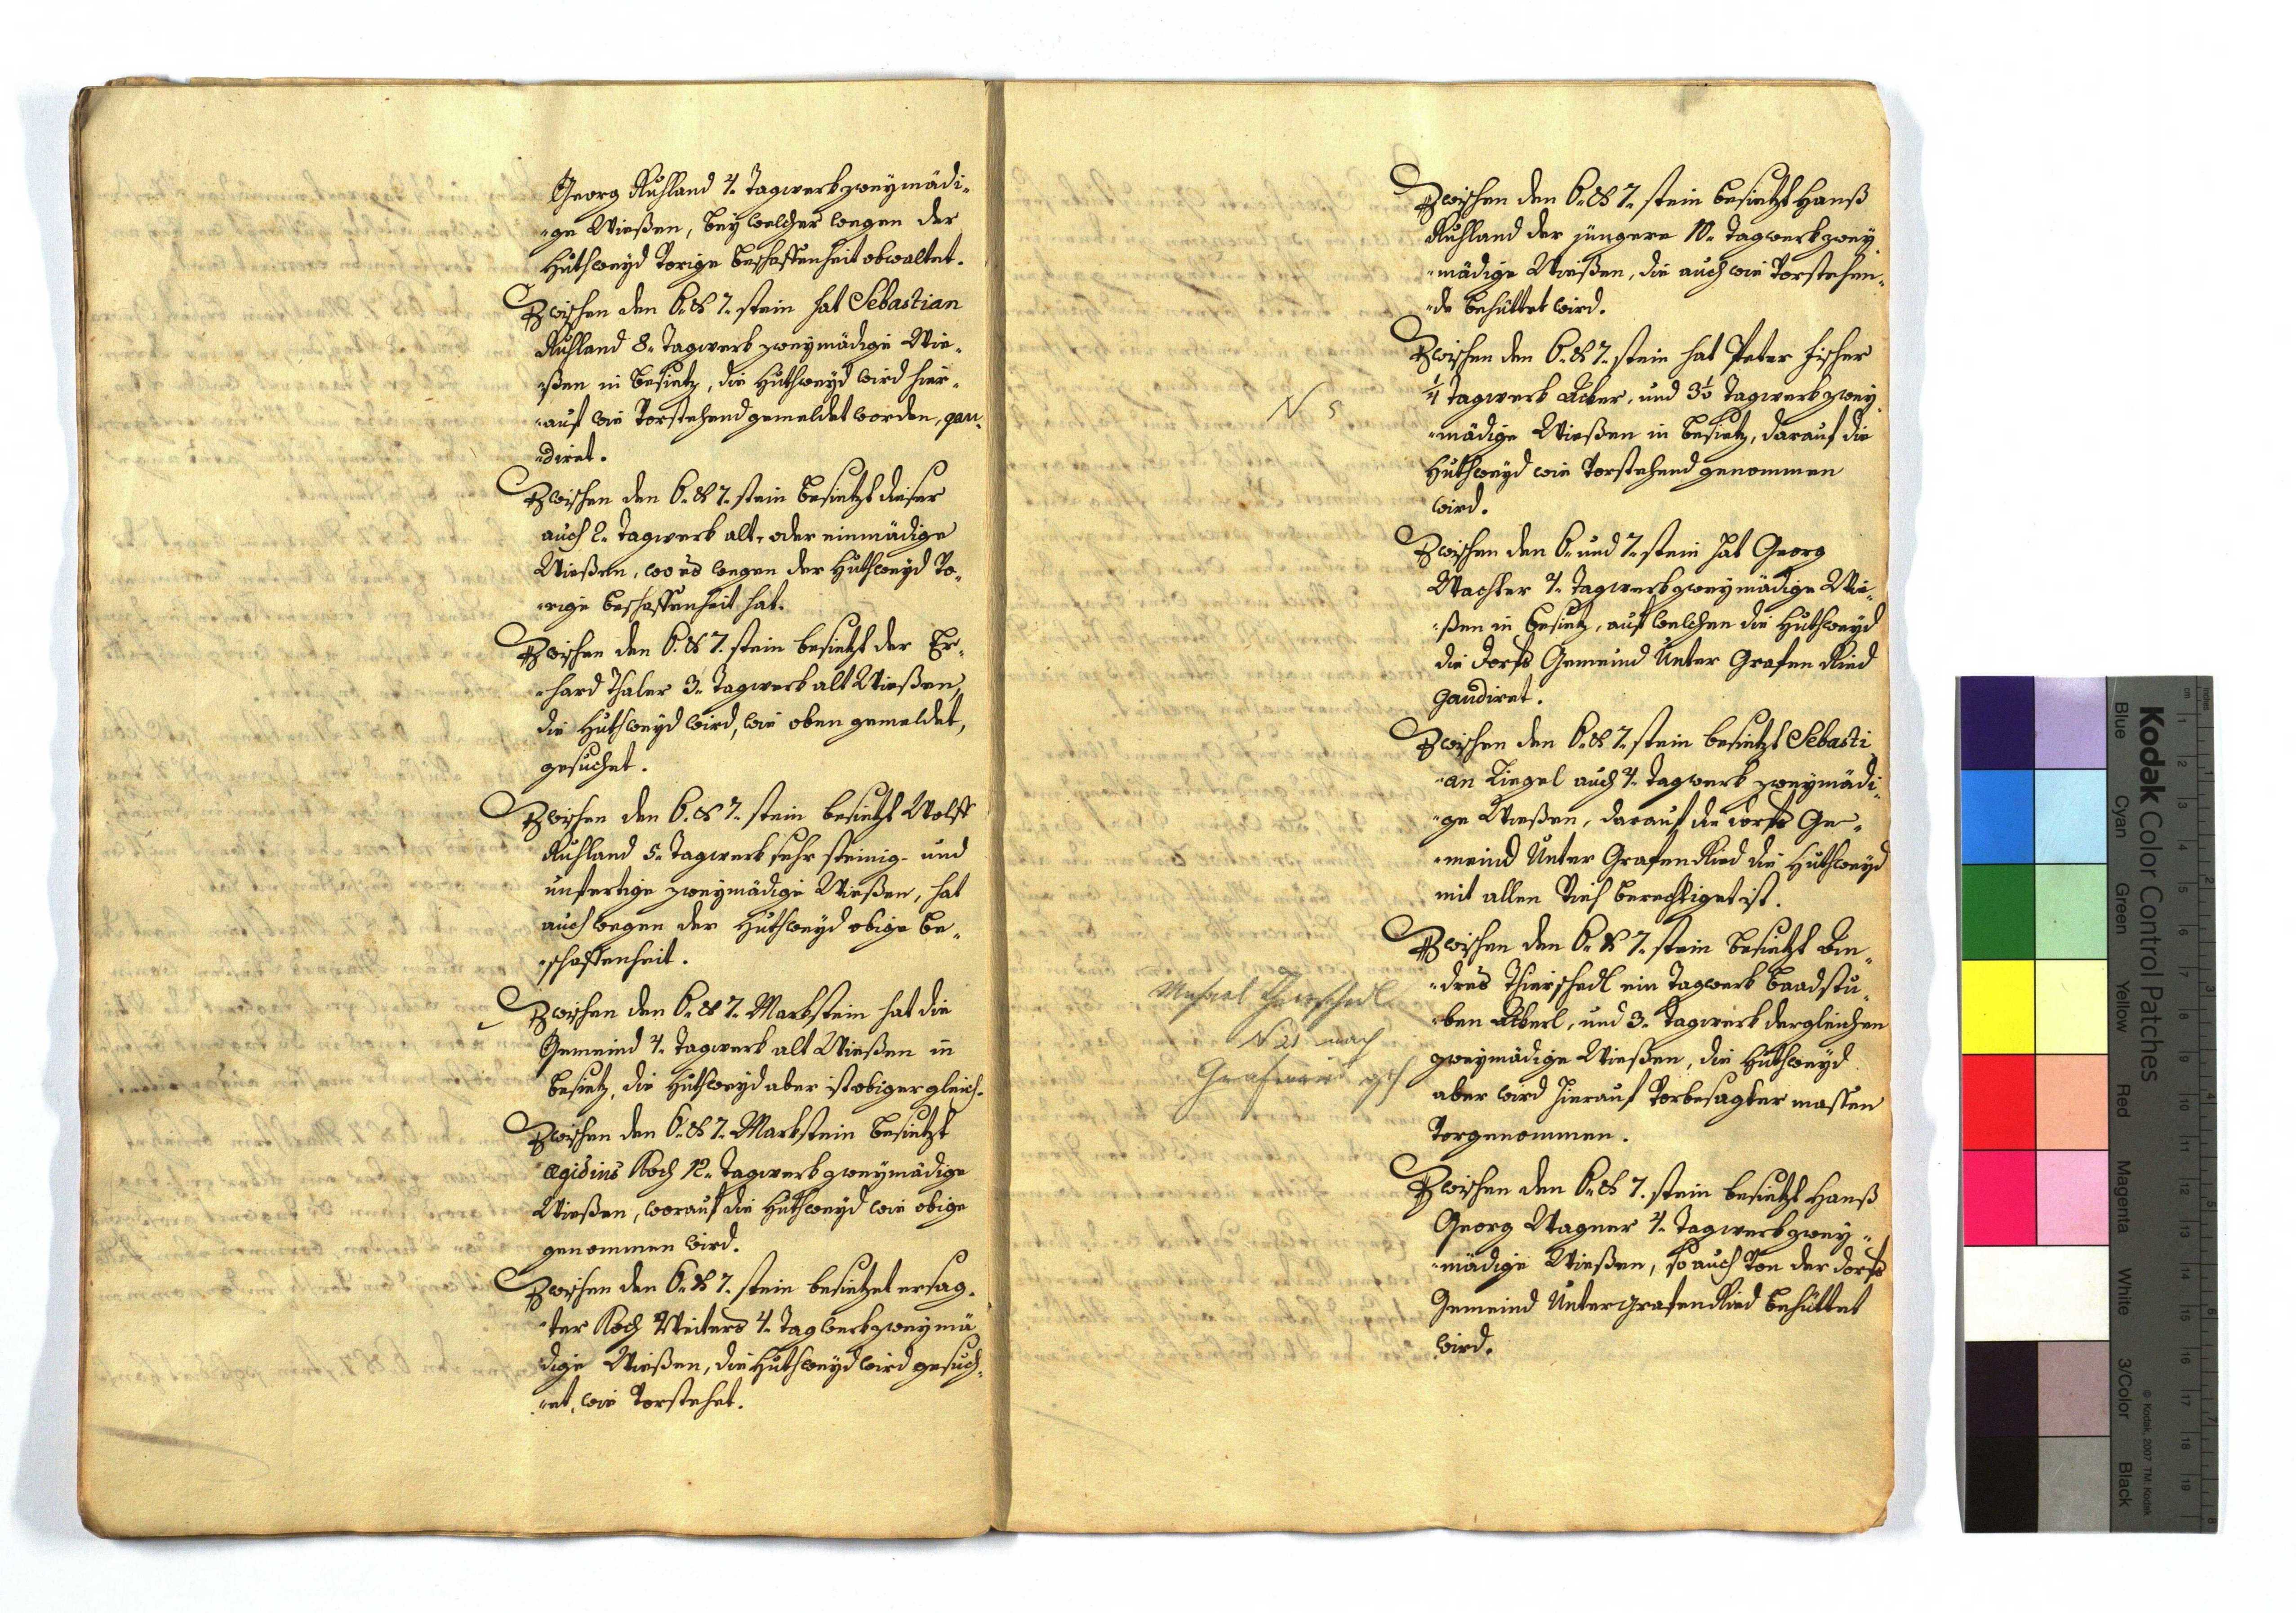 Georg Ruhland 4. Tagwerk zweymädi„
„ge Wießen, bey welcher wegen der
Huthweyd vorige beschaffenheit obwaltet.
Zwischen den 6. & 7. stein hat Sebastian
Ruhland 8. Tagwerk zweymädige Wie„
„ßen in besietz, die Huthweyd wird hier„
„auf wie vorstehend gemeldet worden, gau„
„diret.
Zwischen den 6. & 7. stein besietzt dieser
auch 2. Tagwerk alt- oder einmädige
Wießen, wo es wegen der Huthweyd vo„
„rige beschaffenheit hat.
Zwischen den 6. & 7. stein besietzt der Er„
„hard Thaler 3. Tagwerk alt Wießen,
die Huthweyd wird, wie oben gemeldet,
gesuchet.
Zwischen den 6. & 7. stein besietzt Wolff
Ruhland 5. Tagwerk sehr steinig- und
unfertige zweymädige Wießen, hat
auch wegen der Huthweyd obige be„
„schaffenheit.
Zwischen den 6. & 7. Markstein hat die
Gemeind 4. Tagwerk alt Wießen in
besietz, die Huthweyd aber ist obiger gleich.
Zwischen den 6. & 7. Markstein besietzt
Ægidius Koch 12. Tagwerk zweymädige
Wießen, worauf die Huthweyd wie obige
genommen wird.
Zwischen den 6. & 7. stein besietzet ersag„
„ter Koch Weiters 4. Tagwerk zweymä
dige Wießen, die Huthweyd wird gesuch„
„et, wie vorstehet.
Zwischen den 6. & 7. stein besietzt Hanß
Ruhland der jüngere 10. Tagwerk zwey„
„mädige Wießen, die auch wie vorstehen„
„de behüttet wird.
Zwischen den 6. & 7. stein hat Peter Fischer
N 5
¼ Tagwerk Äcker, und 3½ Tagwerk zwey„
„mädige Wießen in besietz, darauf die
Huthweyd wie vorstehend genommen
wird.
Zwischen den 6. und 7. stein hat Georg
Wachter 4. Tagwerk zweymädige Wie„
„ßen in besietz, auf welchen die Huthweyd
die dorfs Gemeind Unter Grafen Ried
gaudiret.
Zwischen den 6. & 7. stein besietzt Sebasti
„an Liegel auch 4. Tagwerk zweymädi„
„ge Wießen, darauf die dorfs Ge„
„meind Unter Grafen Ried die Huthweyd
mit allen Vieh berechtiget ist.
Zwischen den 6. & 7. stein besietzt An„
„dres Thierschedl ein Tagwerk baadstu„
„ben Äckerl, und 3. Tagwerk dergleichen
zweymädige Wießen, die Huthweyd
aber wird hierauf vorbesagter massen
vorgenommen.
Michael Thierschedl
N 21 nach
Grafenried
Zwischen den 6. & 7. stein besietzt Hanß
Georg Wagner 4. Tagwerk zwey„
„mädige Wießen, so auch von der dorfs
Gemeind Untergrafen Ried behüttet
wird.
Kodak Color Control Patches
Blue Cyan Green Yellow Red Magenta White 3/Color Black
© Kodak, 2007 TM: Kodak